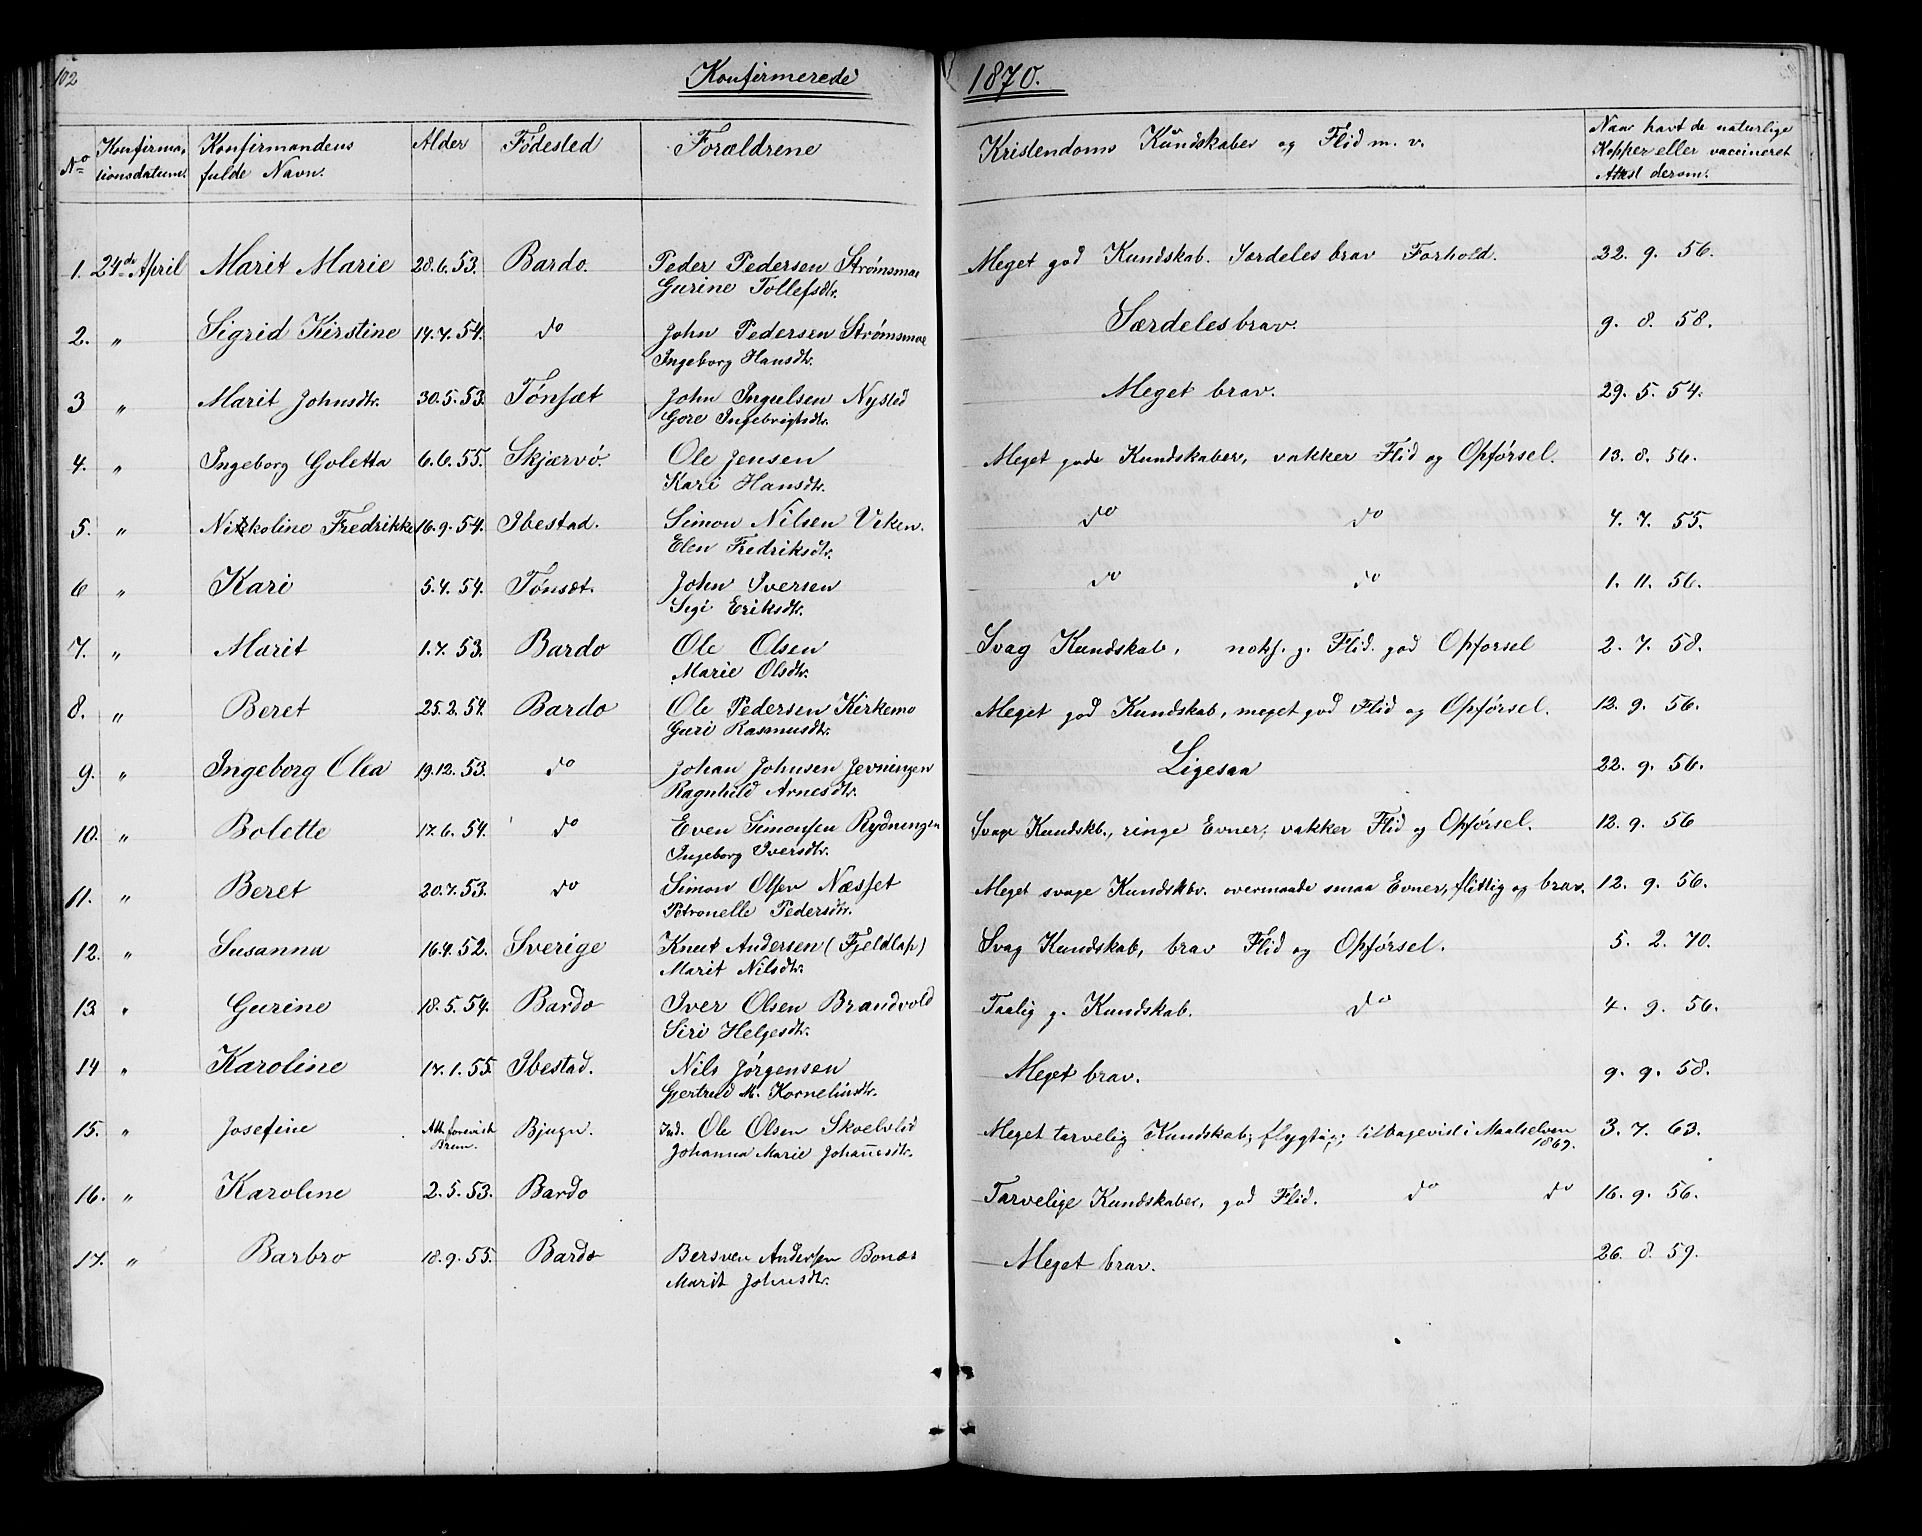 102
Konfirmerede 1870.
No Konfirma, tionsdatum. Konfirmandens fulde Navn. Alder Fødested Forældrene Kristendoms Kundskaber og Flid m. v. Naar havt de naturlige Kopper eller vaccineret Attest derom.
1. 24de April Marit Marie 28.6.53. Bardo. Peder Pedersen Strømsmoe Meget god Kundskab. Særdeles brav Forhold. 22. 9. 56.
Gurine Tollefsdtr.
2. " Sigrid Kirstine 14.7.54. do John Pedersen Strømsmoe Særdeles brav. 9. 8. 58.
Ingeborg Hansdtr.
3 " Marit Johnsdtr. 30.5.53. Tønsæt John Ingulsen Nysted Meget brav. 29. 5. 54.
Gore Ingebrigtsdtr.
4. " Ingeborg Goletta 6.6.55. Skjærvø. Ole Jensen Meget gode Kundskaber, vakker Flid og Opførsel. 13. 8. 56.
Kari Hansdtr.
5. " Nikoline Fredrikke 16.9.54. Ibestad. Simon Nilsen Viken. do do 4. 7. 55.
Elen Fredriksdtr.
6 " Kari 5.4.54. Tønsæt. John Iversen do do 1. 11. 56.
Sigi Eriksdtr.
7. " Marit 1.7.53. Bardo Ole Olsen Svag Kundskab, noks. g. Flid. god Opførsel 2. 7. 58.
Marie Olsdtr.
8. " Beret 25.2.54. Bardo Ole Pedersen Kirkemo Meget god Kundskab, meget god Flid og Opførsel. 12. 9. 56.
Guri Rasmusdtr.
9. " Ingeborg Olea 19.12.53. do Johan Johnsen Jevningen Ligesaa 22. 9. 56.
Ragnhild Arnesdtr.
10. " Bolette 17.6.54. do Even Simonsen Rydningen Svage Kundskb., ringe Evner, vakker Flid og Opførsel. 12. 9. 56
Ingeborg Iversdtr.
11. " Beret 20.7.53. do Simon Olsen Næsset Meget svage Kundskbr. overmaade smaa Evner, flittig og brav. 12. 9. 56.
Petronelle Pedersdtr.
12. " Susanna 16.4.52. Sverige Knut Andersen (Fjeldlap) Svag Kundskab, brav Flid og Opførsel. 5. 2. 70.
Marit Nilsdtr.
13. " Gurine 18.5.54. Bardo Iver Olsen Brandvold Taalig g. Kundskab. do 4. 9. 56.
Siri Helgesdtr.
14 " Karoline 17.1.55. Ibestad. Nils Jørgensen Meget brav. 9. 9. 58.
Gjertrud M. Kornelius​dtr.
15. " Josefine Bjugn. Ind. Ole Olsen Skoelvlid Meget tarvelig Kundskab; flygtig; tilbagevist i Maalselven 1869. 3. 7. 63.
Johanna Marie Johañesdtr.
16. " Karoline 2.5.53. Bardo Tarvelige Kundskaber, god Flid. do do 16. 9. 56.
17. " Barbro 18.9.55. Bardo Bersven Andersen Bonæs Meget brav. 26. 8. 59.
Marit Johnsdtr.